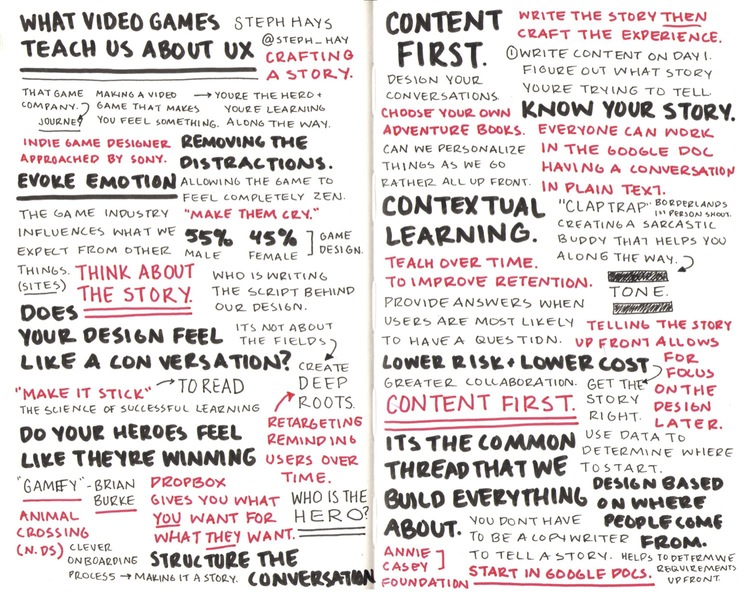 WHAT VIDEO GAMES STEPH HAYS
TEACH US ABOUT UX @STEPH_HAY
CRAFTING
A STORY.
THAT GAME
COMPANY.
JOURNEY
MAKING A VIDEO
GAME THAT MAKES
YOU FEEL SOMETHING.
→ YOURE THE HERO +
YOURE LEARNING
ALONG THE WAY.
INDIE GAME DESIGNER
APPROACHED BY SONY.
REMOVING THE
DISTRACTIONS.
EVOKE EMOTION
ALLOWING THE GAME TO
FEEL COMPLETELY ZEN.
THE GAME INDUSTRY
INFLUENCES WHAT WE
EXPECT FROM OTHER
THINGS.
(SITES)
"MAKE THEM CRY."
55% 45% ] GAME
MALE FEMALE DESIGN.
THINK ABOUT
THE STORY.
WHO IS WRITING
THE SCRIPT BEHIND
OUR DESIGN.
DOES
YOUR DESIGN FEEL
LIKE A CONVERSATION?
ITS NOT ABOUT
THE FIELDS
CREATE
DEEP
ROOTS.
"MAKE IT STICK" → TO READ
THE SCIENCE OF SUCCESSFUL LEARNING
RETARGETING
REMINDING
USERS OVER
TIME.
DO YOUR HEROES FEEL
LIKE THEYRE WINNING
"GAMEFY" - BRIAN
BURKE
DROPBOX
GIVES YOU WHAT
YOU WANT FOR
WHAT THEY WANT.
WHO IS THE
HERO?
ANIMAL
CROSSING
(N.DS)
CLEVER
ONBOARDING
PROCESS → MAKING IT A STORY.
STRUCTURE THE
CONVERSATION
CONTENT
FIRST.
WRITE THE STORY THEN
CRAFT THE EXPERIENCE.
① WRITE CONTENT ON DAY 1.
FIGURE OUT WHAT STORY
YOURE TRYING TO TELL.
DESIGN YOUR
CONVERSATIONS.
CHOOSE YOUR OWN
ADVENTURE BOOKS.
CAN WE PERSONALIZE
THINGS AS WE GO
RATHER ALL UP FRONT.
KNOW YOUR STORY.
EVERYONE CAN WORK
IN THE GOOGLE DOC
HAVING A CONVERSATION
IN PLAIN TEXT.
CONTEXTUAL
LEARNING.
"CLAPTRAP" BORDERLANDS
1ST PERSON SHOOT.
CREATING A SARCASTIC
BUDDY THAT HELPS YOU
ALONG THE WAY.
TONE.
TEACH OVER TIME.
TO IMPROVE RETENTION.
PROVIDE ANSWERS WHEN
USERS ARE MOST LIKELY
TO HAVE A QUESTION.
TELLING THE STORY
UP FRONT ALLOWS
FOR
FOCUS
ON THE
DESIGN
LATER.
LOWER RISK + LOWER COST
GREATER COLLABORATION.
CONTENT FIRST.
GET THE
STORY
RIGHT.
USE DATA TO
DETERMINE WHERE
TO START.
ITS THE COMMON
THREAD THAT WE
BUILD EVERYTHING
ABOUT.
DESIGN BASED
ON WHERE
PEOPLE COME
FROM.
YOU DONT HAVE
TO BE A COPYWRITER
TO TELL A STORY.
ANNIE ]
CASEY
FOUNDATION
START IN GOOGLE DOCS.
HELPS TO DETERMINE
REQUIREMENTS
UPFRONT.